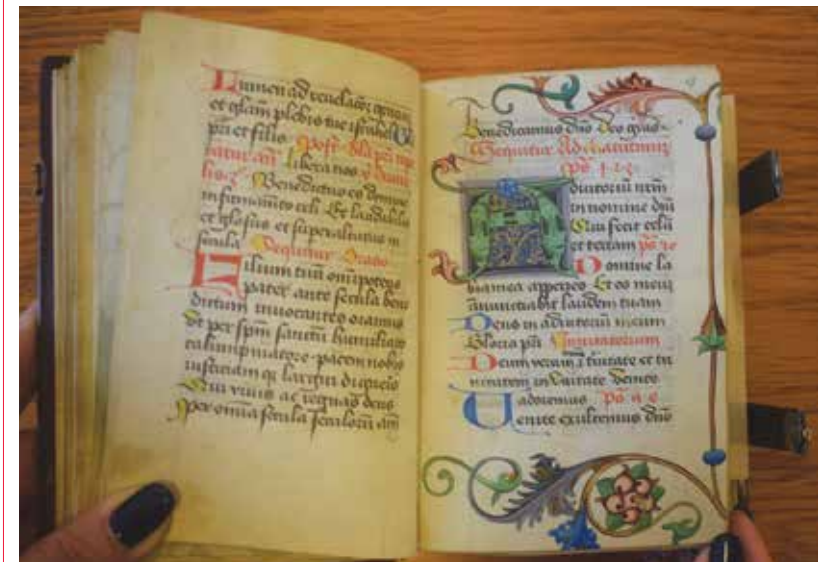 Lumen ad revelacõz gentiũ
et glam̃ plebis tue israhel
pri et filio Post
libera nos
Benedictus es domine
in firmamẽto celi Et laudabilis
et glosus et superaltatus in
secula Sequitur Oratio
Filium tuũ om̃ipotens
pater ante secula bene
dictum invocantes oramus
Vt per spm̃ sanctũ humiliato
pacem nobis
Qui vivis ac regnas deus
Per om̃ia secula seculorũ am̃
Benedicamus dño Deo gras
Sequitur Ad matutinũ
Adiutoriũ nrm̃
in nomine dñi
Qui fecit celũ
et terram ps
Domine la
bia mea apperies Et os meũ
annunciabit laudem tuam
Deus in adiutoriũ meum
Gloria pri Invitatorium
Deum verum ĩ trinitate et tri
nitatem in vnitate Venite
adoremus ps
Venite exultemus dño